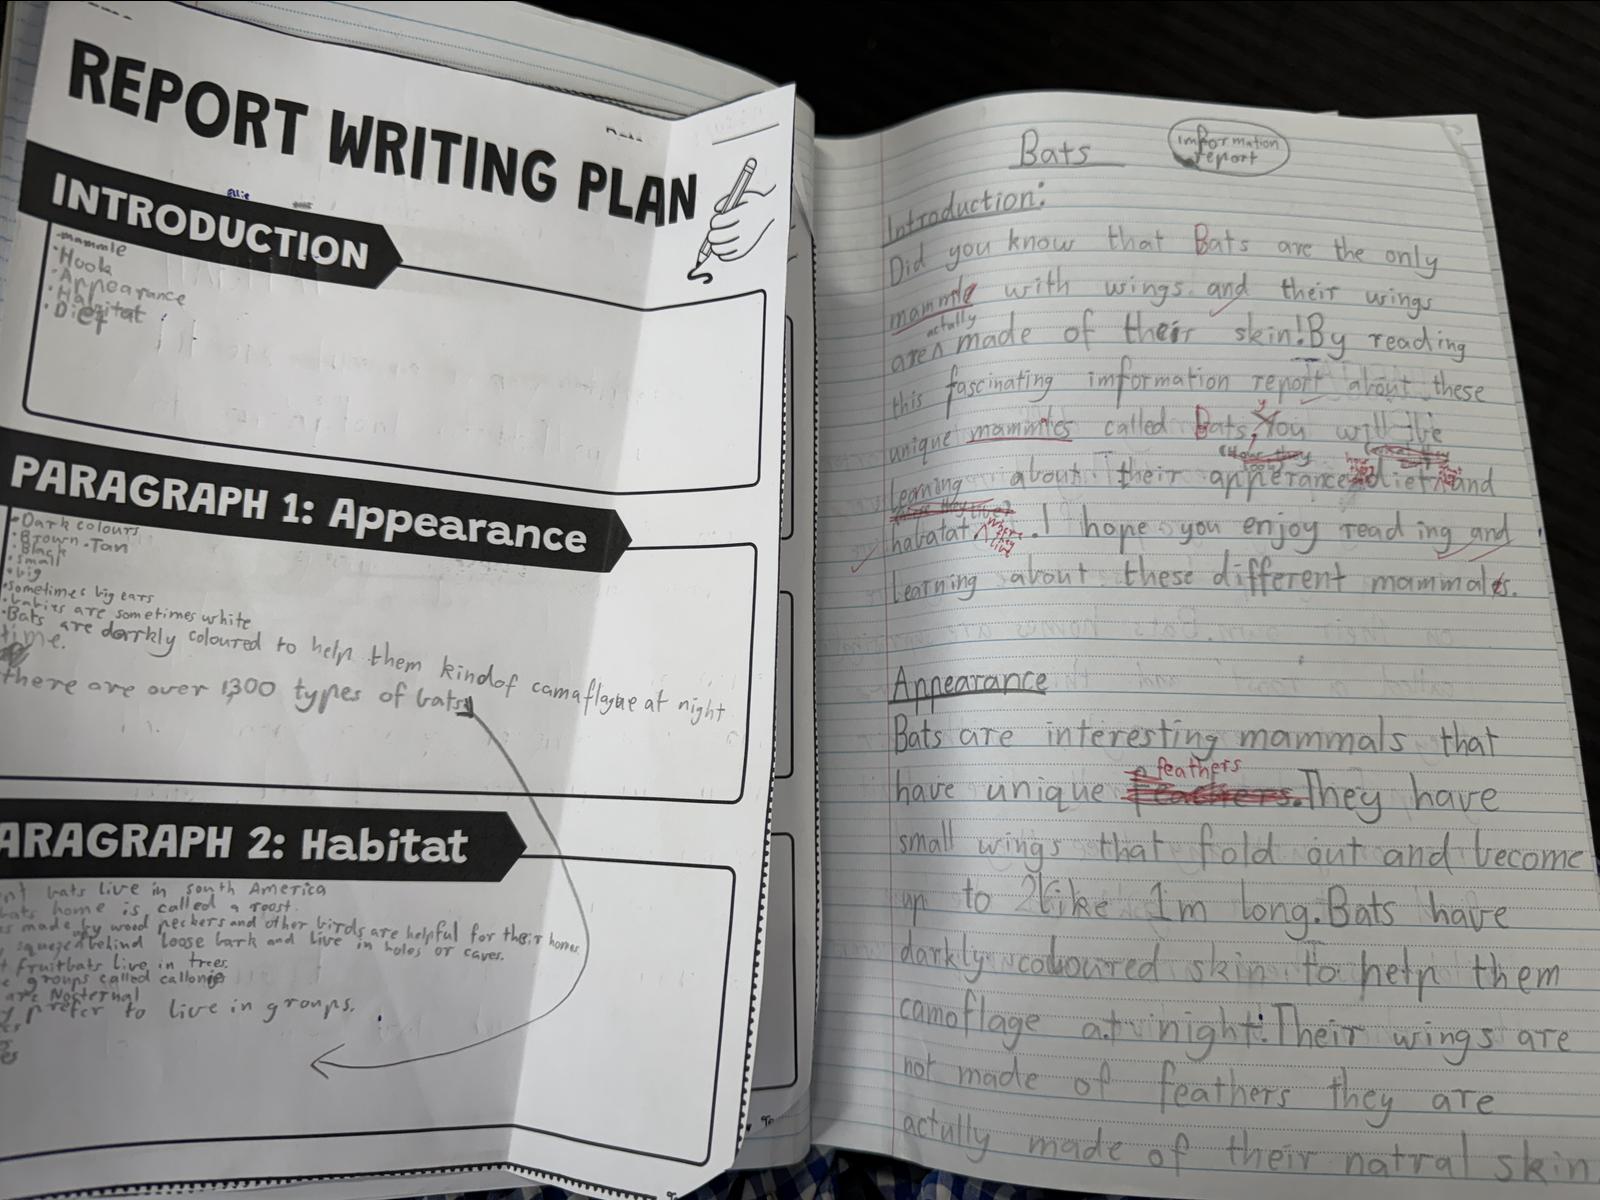 REPORT WRITING PLAN
Ellie
INTRODUCTION
mammle
• Hook
• Appearance
• Habitat
• Diet
PARAGRAPH 1: Appearance
• Dark colours
• Brown • Tan
• Black
• small
• big
• sometimes big ears
• babies are sometimes white
• Bats are darkly coloured to help them kindof camaflague at night
time.
there are over 1,300 types of bats
ARAGRAPH 2: Habitat
bats live in south America
bats home is called a roost.
made by wood peckers and other birds are helpful for their homes
squeeze behind loose bark and live in holes or caves.
fruitbats live in trees.
groups called callonie
are Nocternal
prefer to live in groups.
Bats
imformation
report
Introduction:
Did you know that Bats are the only
mammle with wings and their wings
actully
are ^ made of their skin! By reading
this fascinating imformation report about these
unique mammles called Bats, y You will be
Learning about their apperance diet and
habatat ^ where they live . I hope you enjoy read ing and
Learning about these different mammals.
Appearance
Bats are interesting mammals that
feathers
have unique feathers. They have
small wings that fold out and become
up to like 1m long. Bats have
darkly coloured skin to help them
camoflage at night. Their wings are
not made of feathers they are
actully made of their natral skin